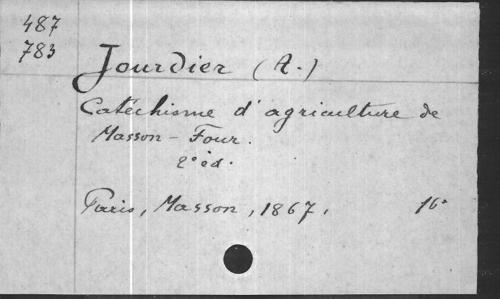 487
783
Jourdier (A.)
Catéchisme d'agriculture de
Masson-Four.
2e éd.
Paris, Masson, 1867, 16°